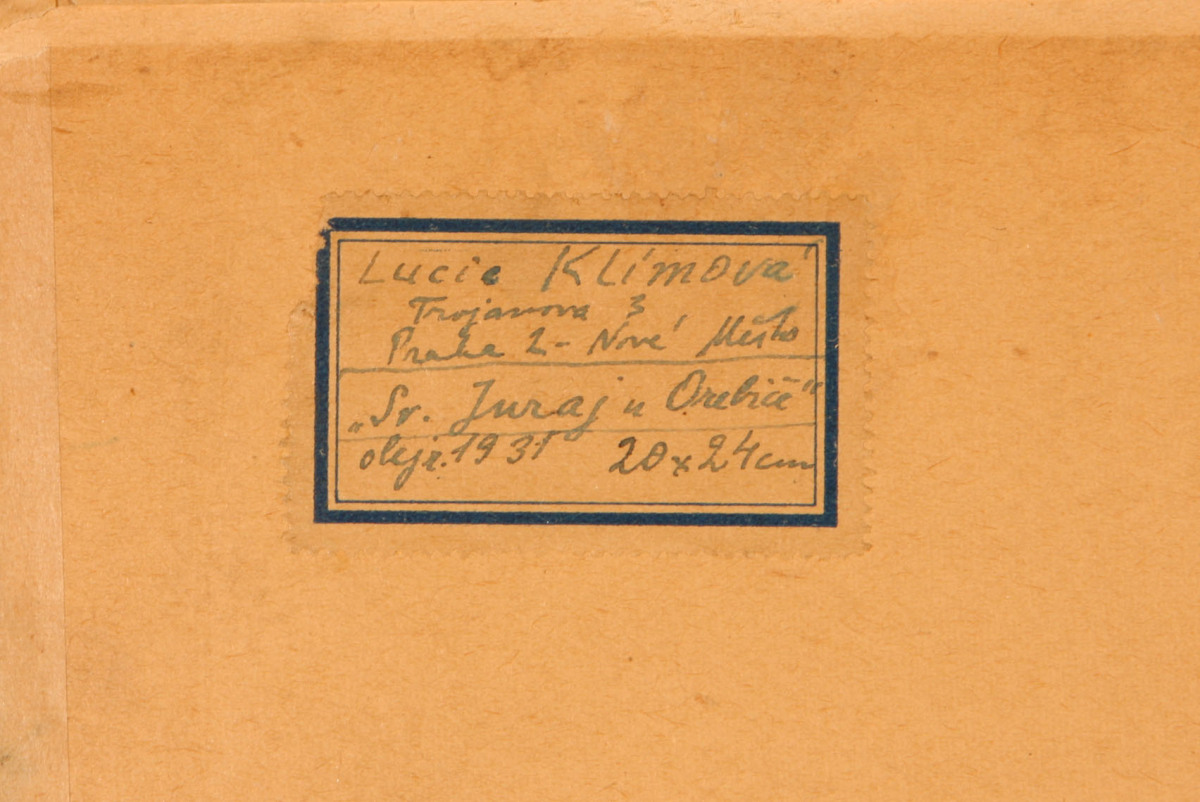 Lucie Klímová
Trojanova 3
Praha 2 - Nové Město
„Sv. Juraj u Orebiče"
olej r. 1931 20 x 24 cm